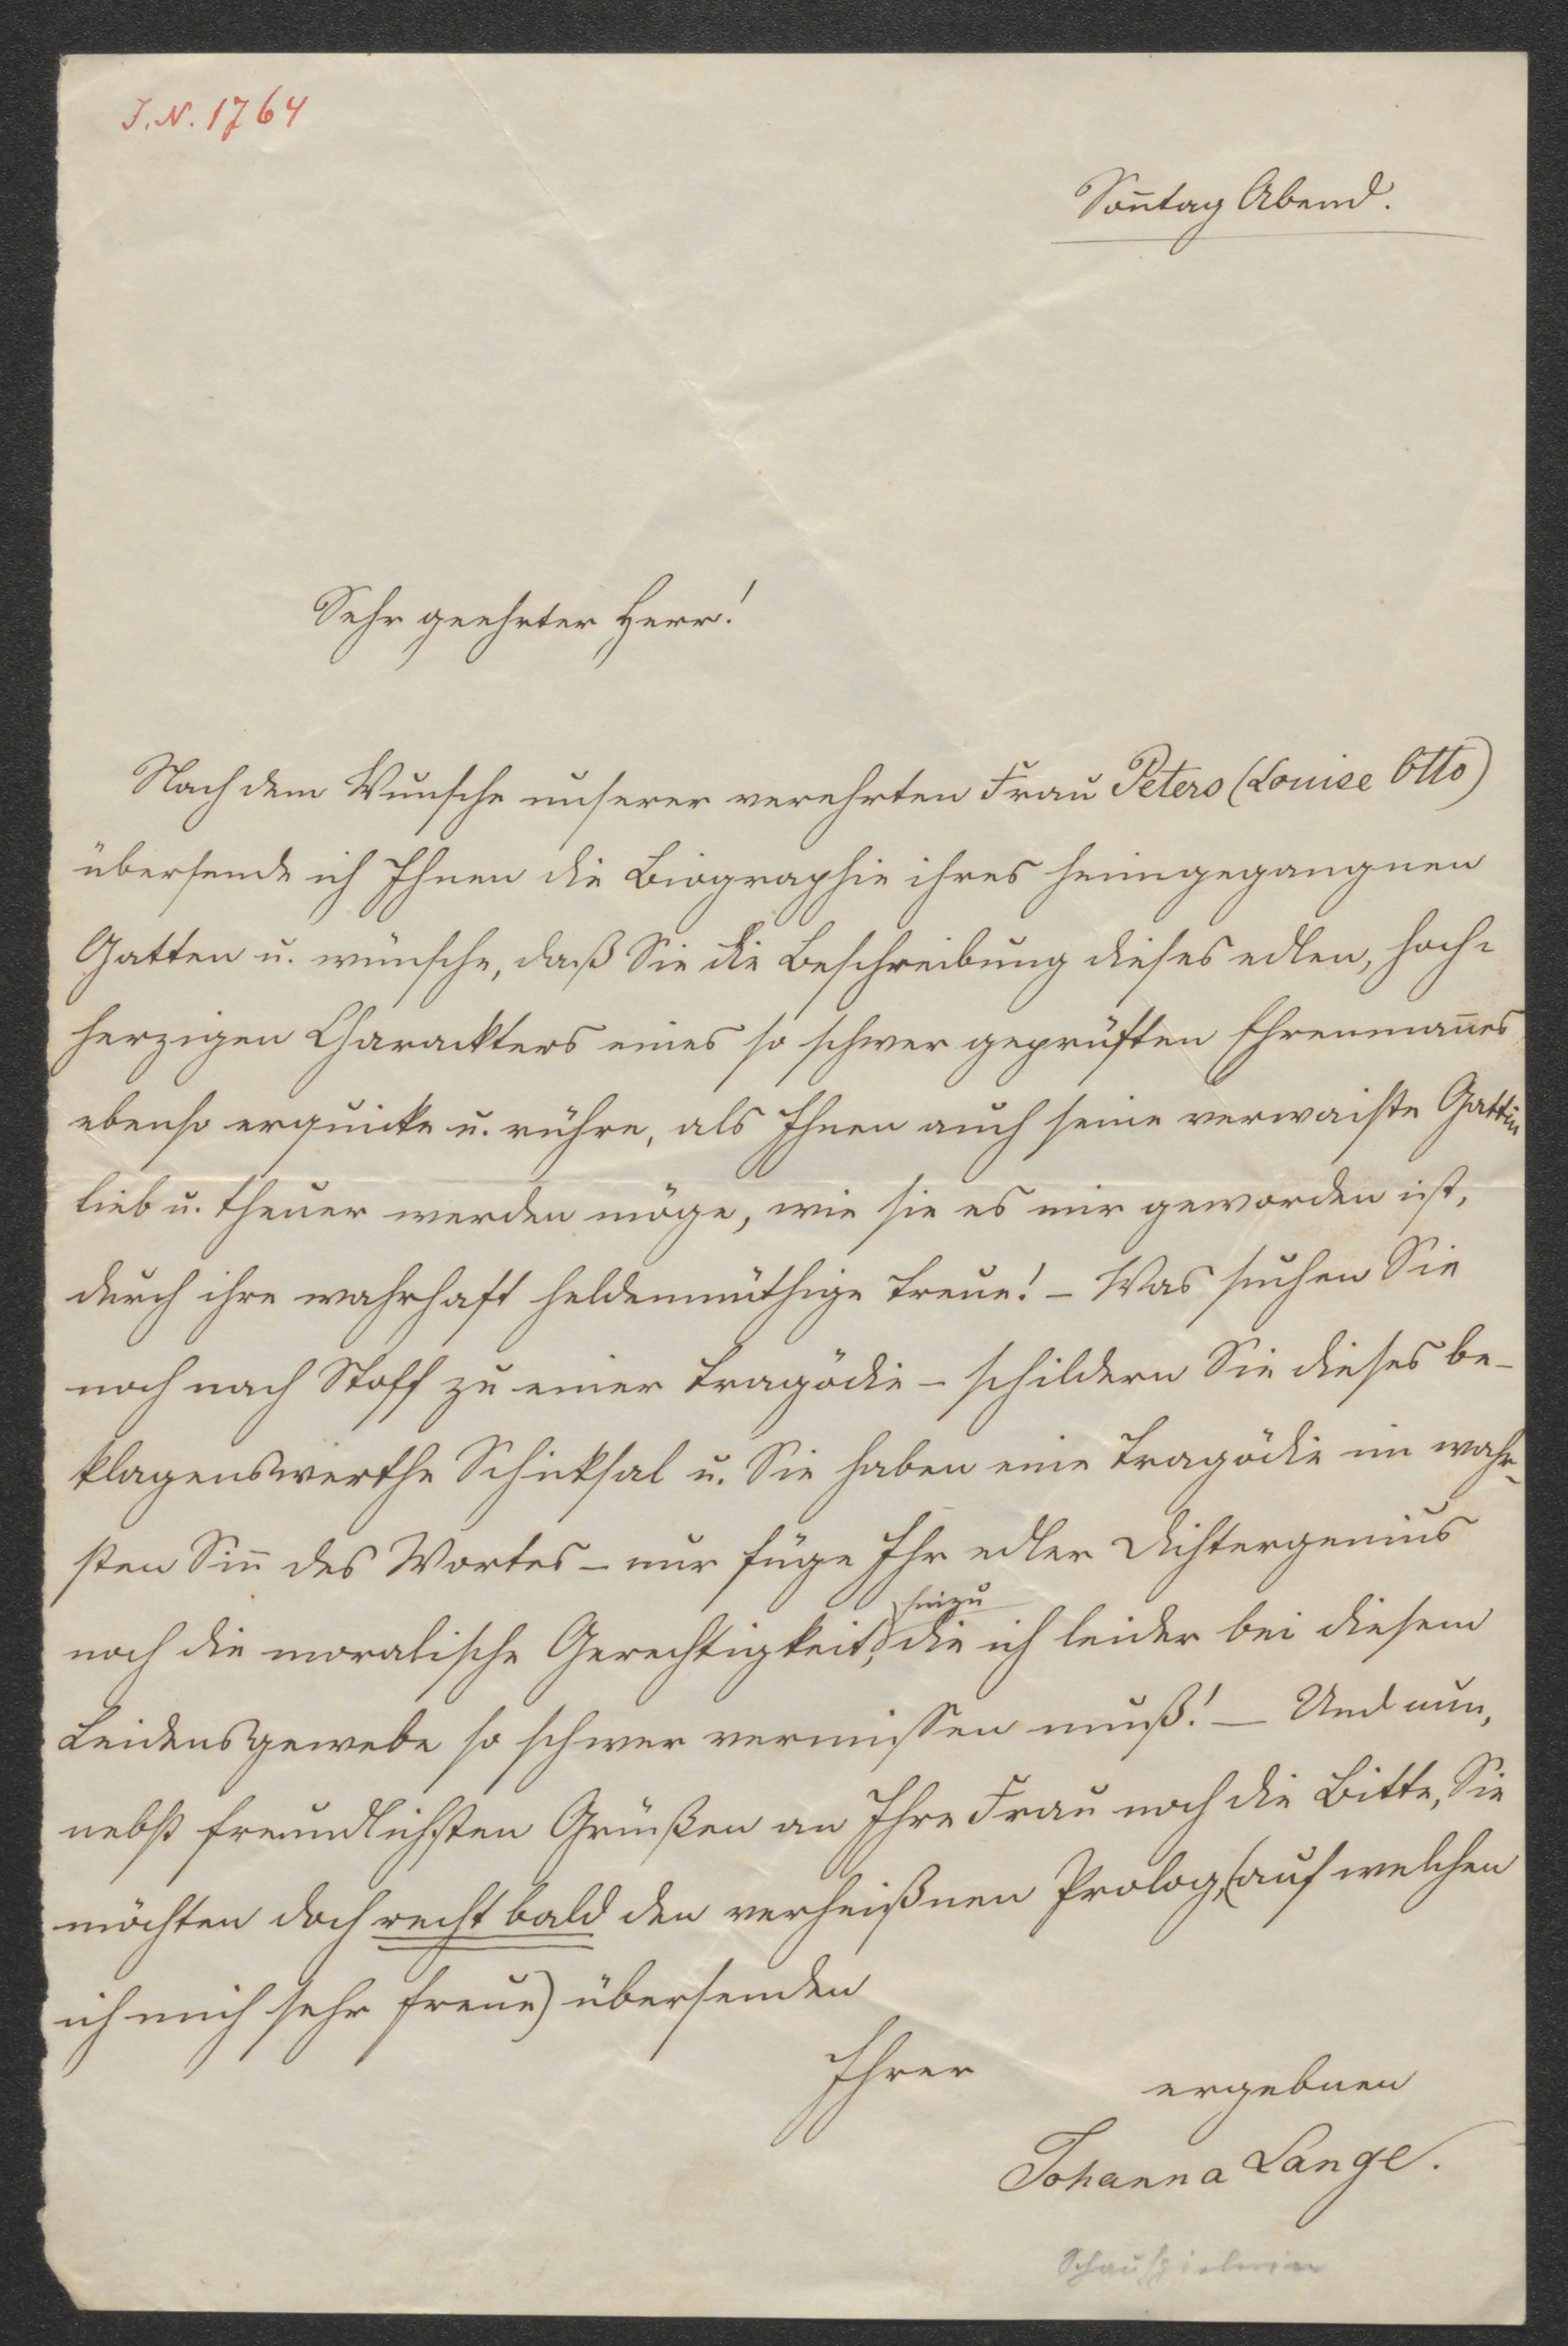 J. N. 1764
Son̄tag Abend.
Sehr geehrter Herr!
Nach dem Wunsche unserer verehrten Frau Peters (Louise Otto)
übersende ich Ihnen die Biographie ihres heimgegangnen
Gatten u. wünsche, daß Sie die Beschreibung dieses edlen, hoch-
herzigen Charackters eines so schwer geprüften Ehrenman̄es
ebenso erquicke u. rühre, als Ihnen auch seine verwaiste Gattin
lieb u. theuer werden möge, wie sie es mir geworden ist,
durch ihre wahrhaft heldenmüthige Treue! – Was suchen Sie
noch nach Stoff zu einer Tragödie – schildern Sie dieses be-
klagenswerthe Schicksal u. Sie haben eine Tragödie im wahr-
sten Sin̄ des Wortes – nur füge Ihr edler Dichtergenius
noch die moralische Gerechtigkeit hinzu, die ich leider bei diesem
Leidensgewebe so schwer vermissen muß! – Und nun,
nebst freundlichsten Grüßen an Ihre Frau noch die Bitte, Sie
möchten doch recht bald den verheißnen Prolog, (auf welchen
ich mich sehr freue) übersenden
Ihrer ergebnen
Johanna Lange.
Schauspielerin